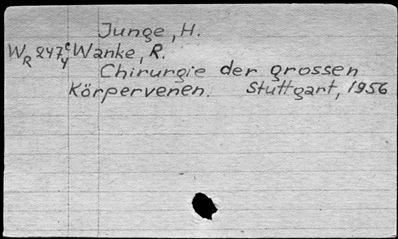 Junge, H.
W_R 247 c/y Wanke, R.
Chirurgie der grossen
Körpervenen. Stuttgart, 1956